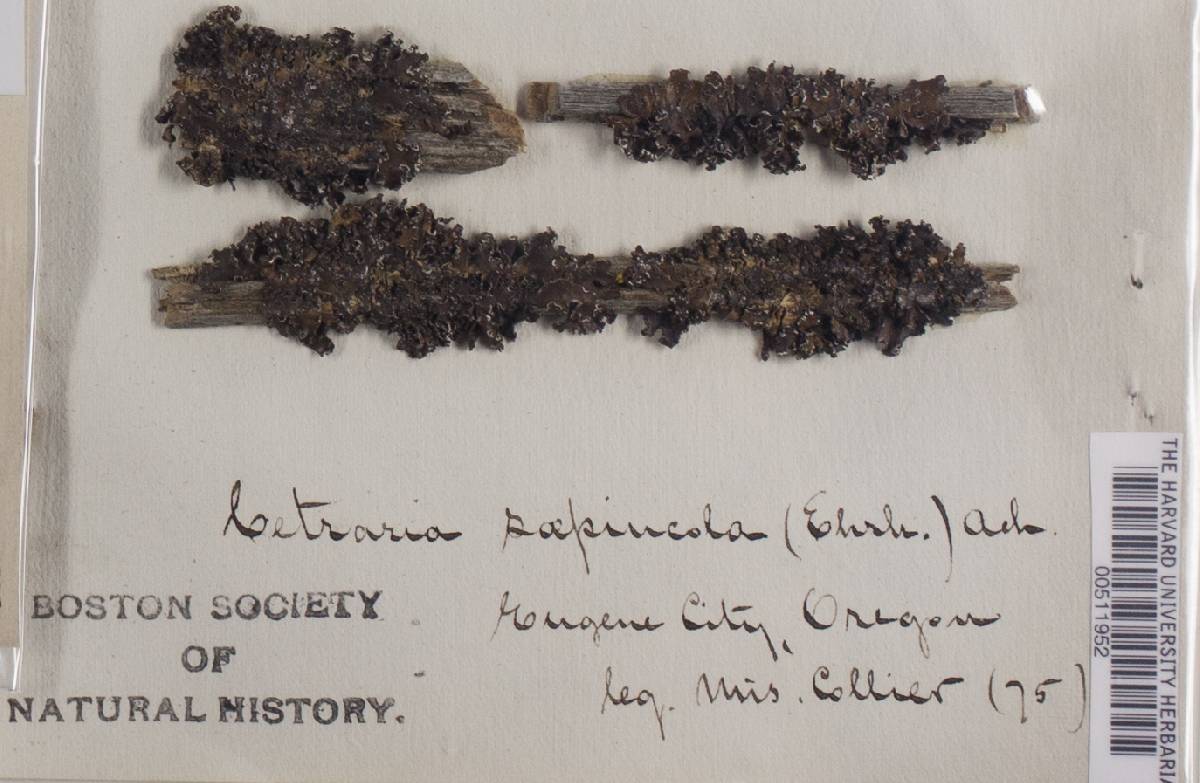 Cetraria sæpincola (Ehrh.) Ach.
Eugene City, Oregon
leg. Mis. Collier (75)
BOSTON SOCIETY
OF
NATURAL HISTORY.
THE HARVARD UNIVERSITY HERBARIA
00511952